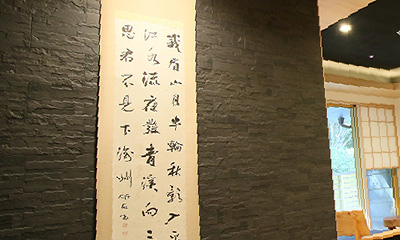 峩眉山月半輪秋影入平
江水流夜發青溪向三
思君不見下渝州